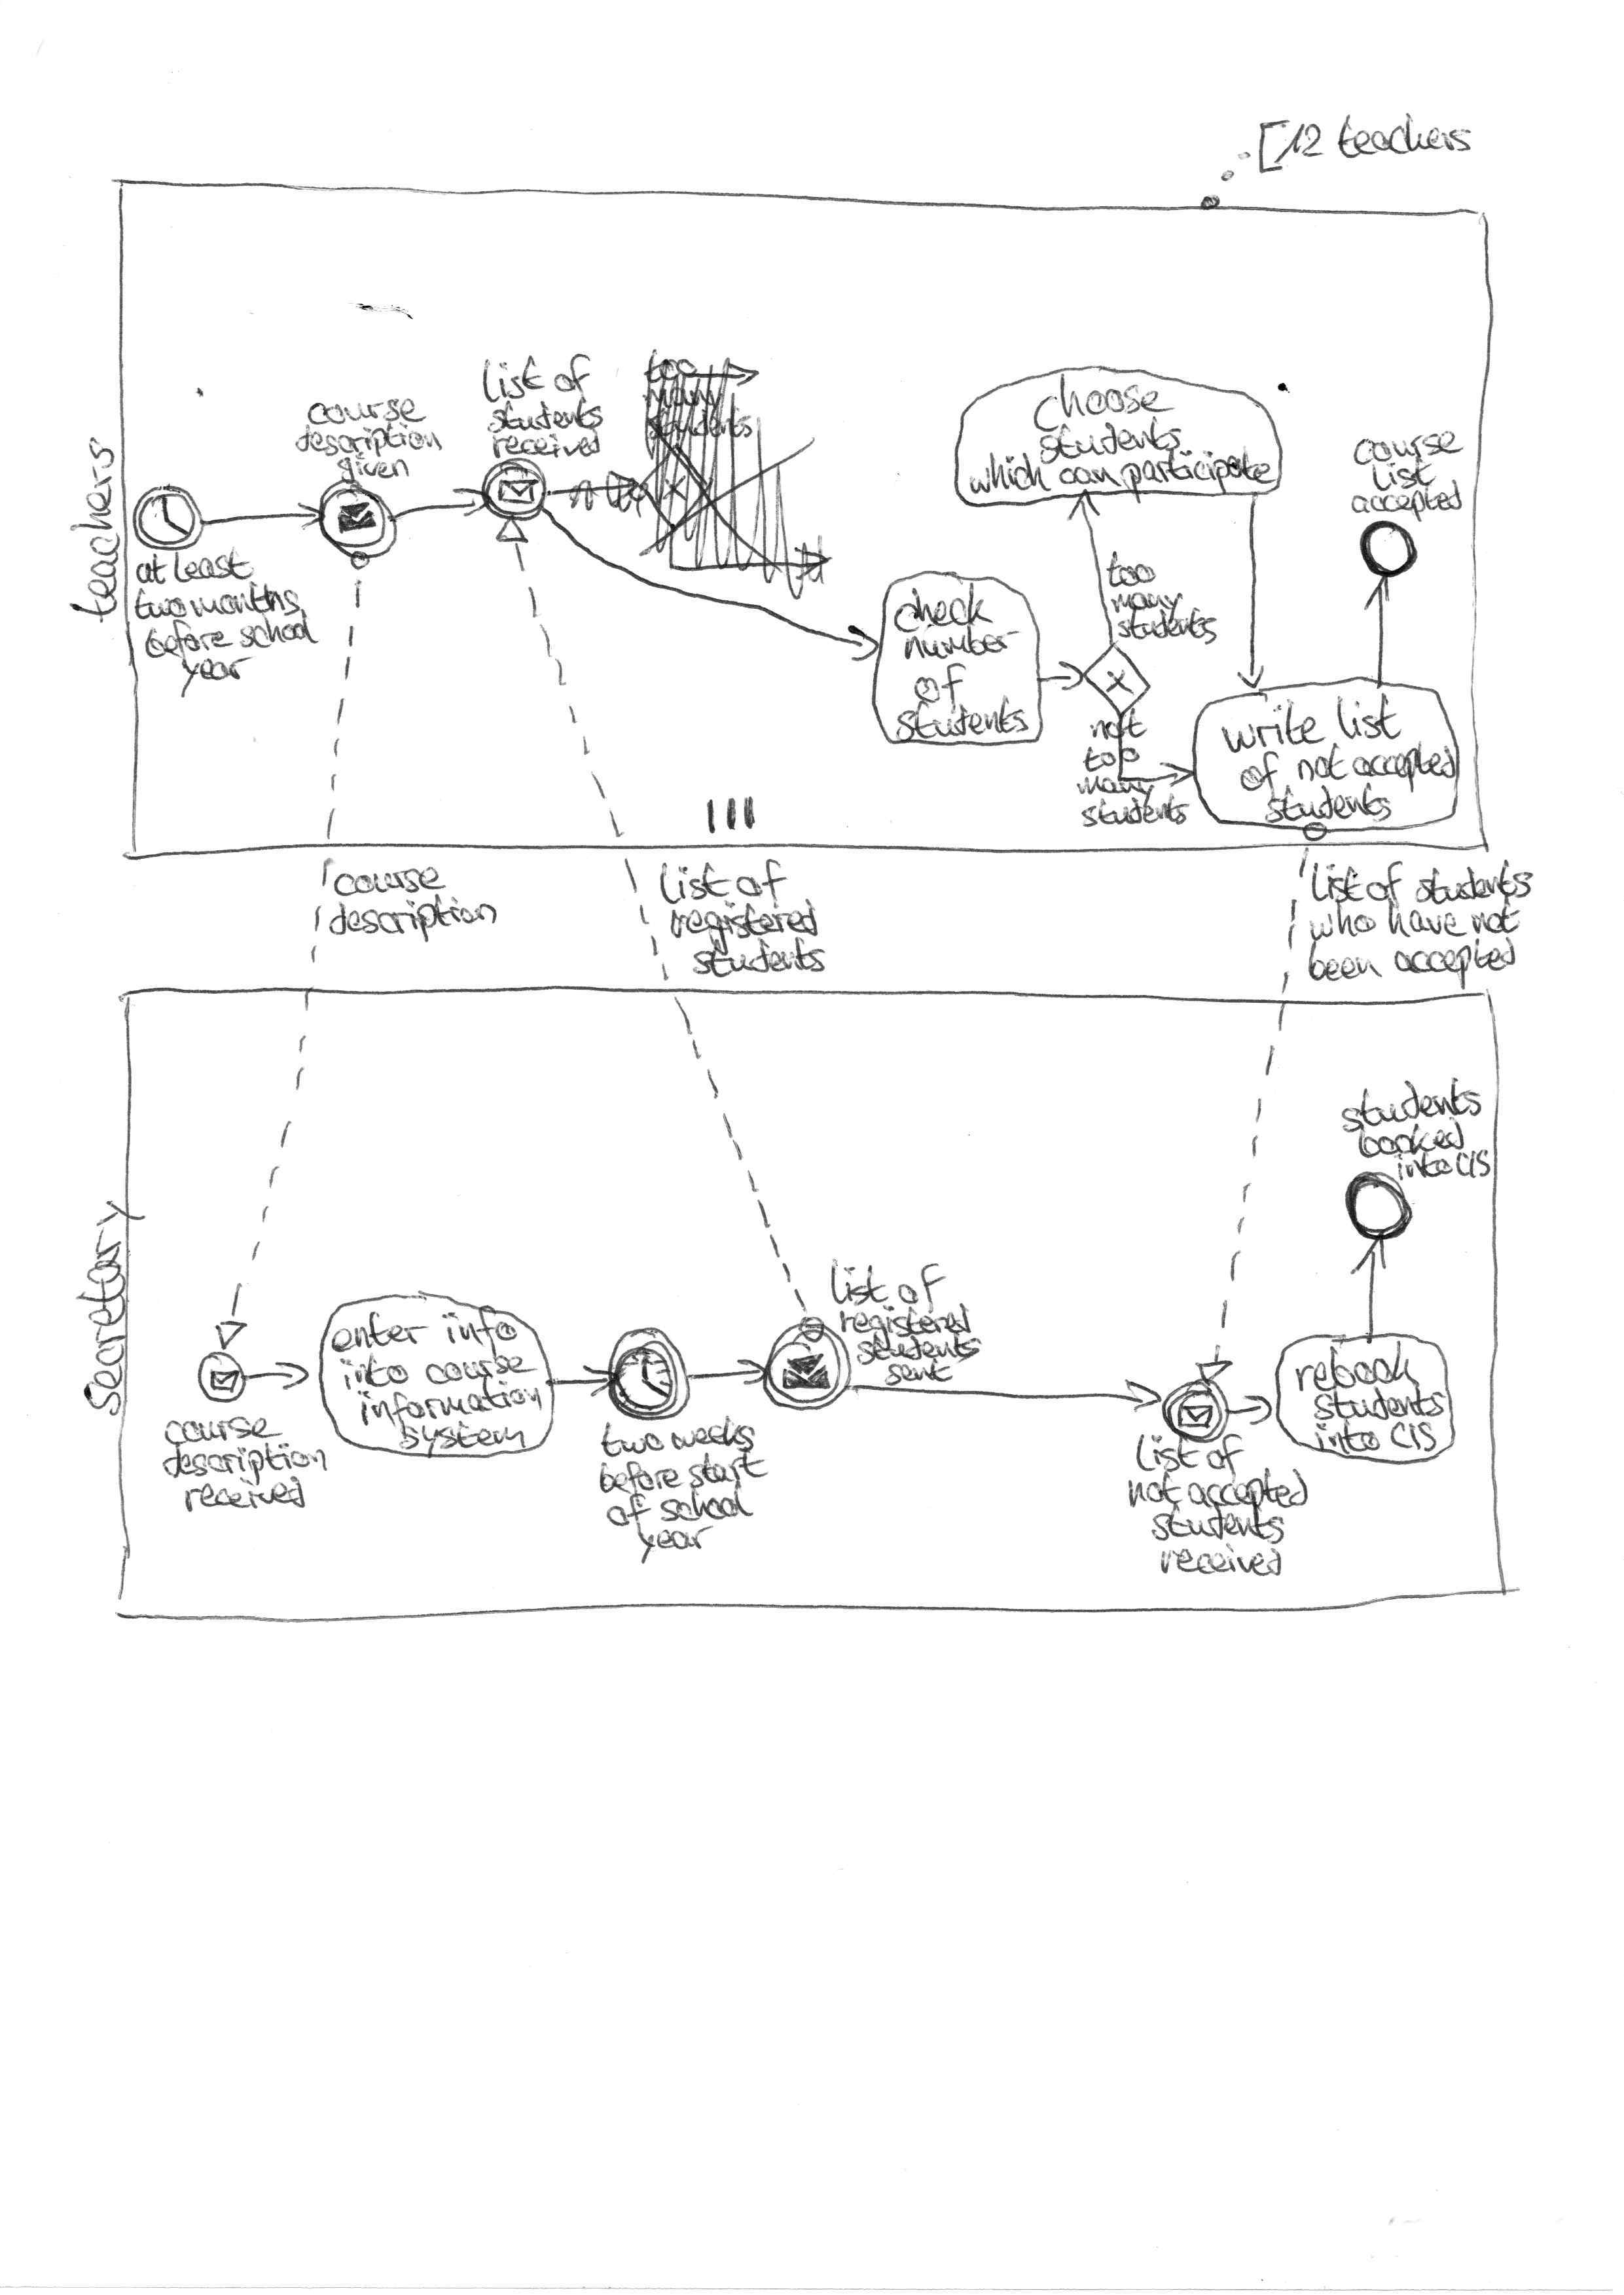 [12 teachers
teachers
at least
two months
before school
year
course
description
given
list of
students
received
too
many
students
check
number
of
students
too
many
students
not
too
many
students
choose
students
which can participate
write list
of not accepted
students
course
list
accepted
course
description
list of
registered
students
list of students
who have not
been accepted
secretary
course
description
received
enter info
into course
information
system
two weeks
before start
of school
year
list of
registered
students
sent
list of
not accepted
students
received
rebook
students
into CIS
students
booked
into CIS